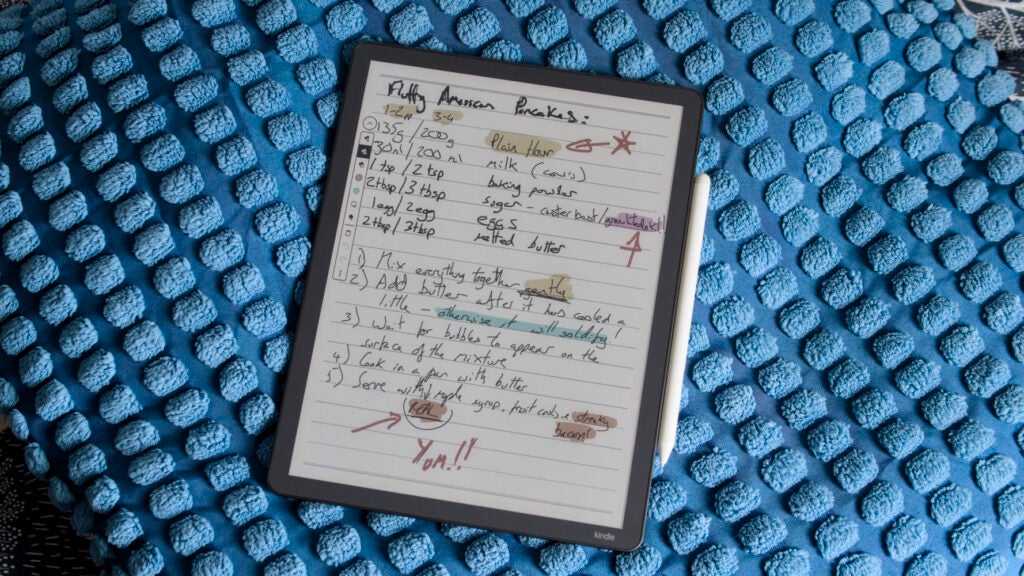 Fluffy American Pancakes:
1-2 3-4
135g / 200g Plain flour
130ml / 200 ml milk (cow's)
1 tsp / 2 tsp baking powder
2tbsp / 3tbsp sugar - caster best /
1egg / 2egg eggs
2tbsp / 3tbsp melted butter
1) Mix everything together
2) Add butter after it has cooled a
little - otherwise it will solidify!
3) Wait for bubbles to appear on the
surface of the mixture
4) Cook in a pan with butter
5) Serve with maple syrup, fruit and/or streaky
bacon!
REAL
Yom!!
kindle